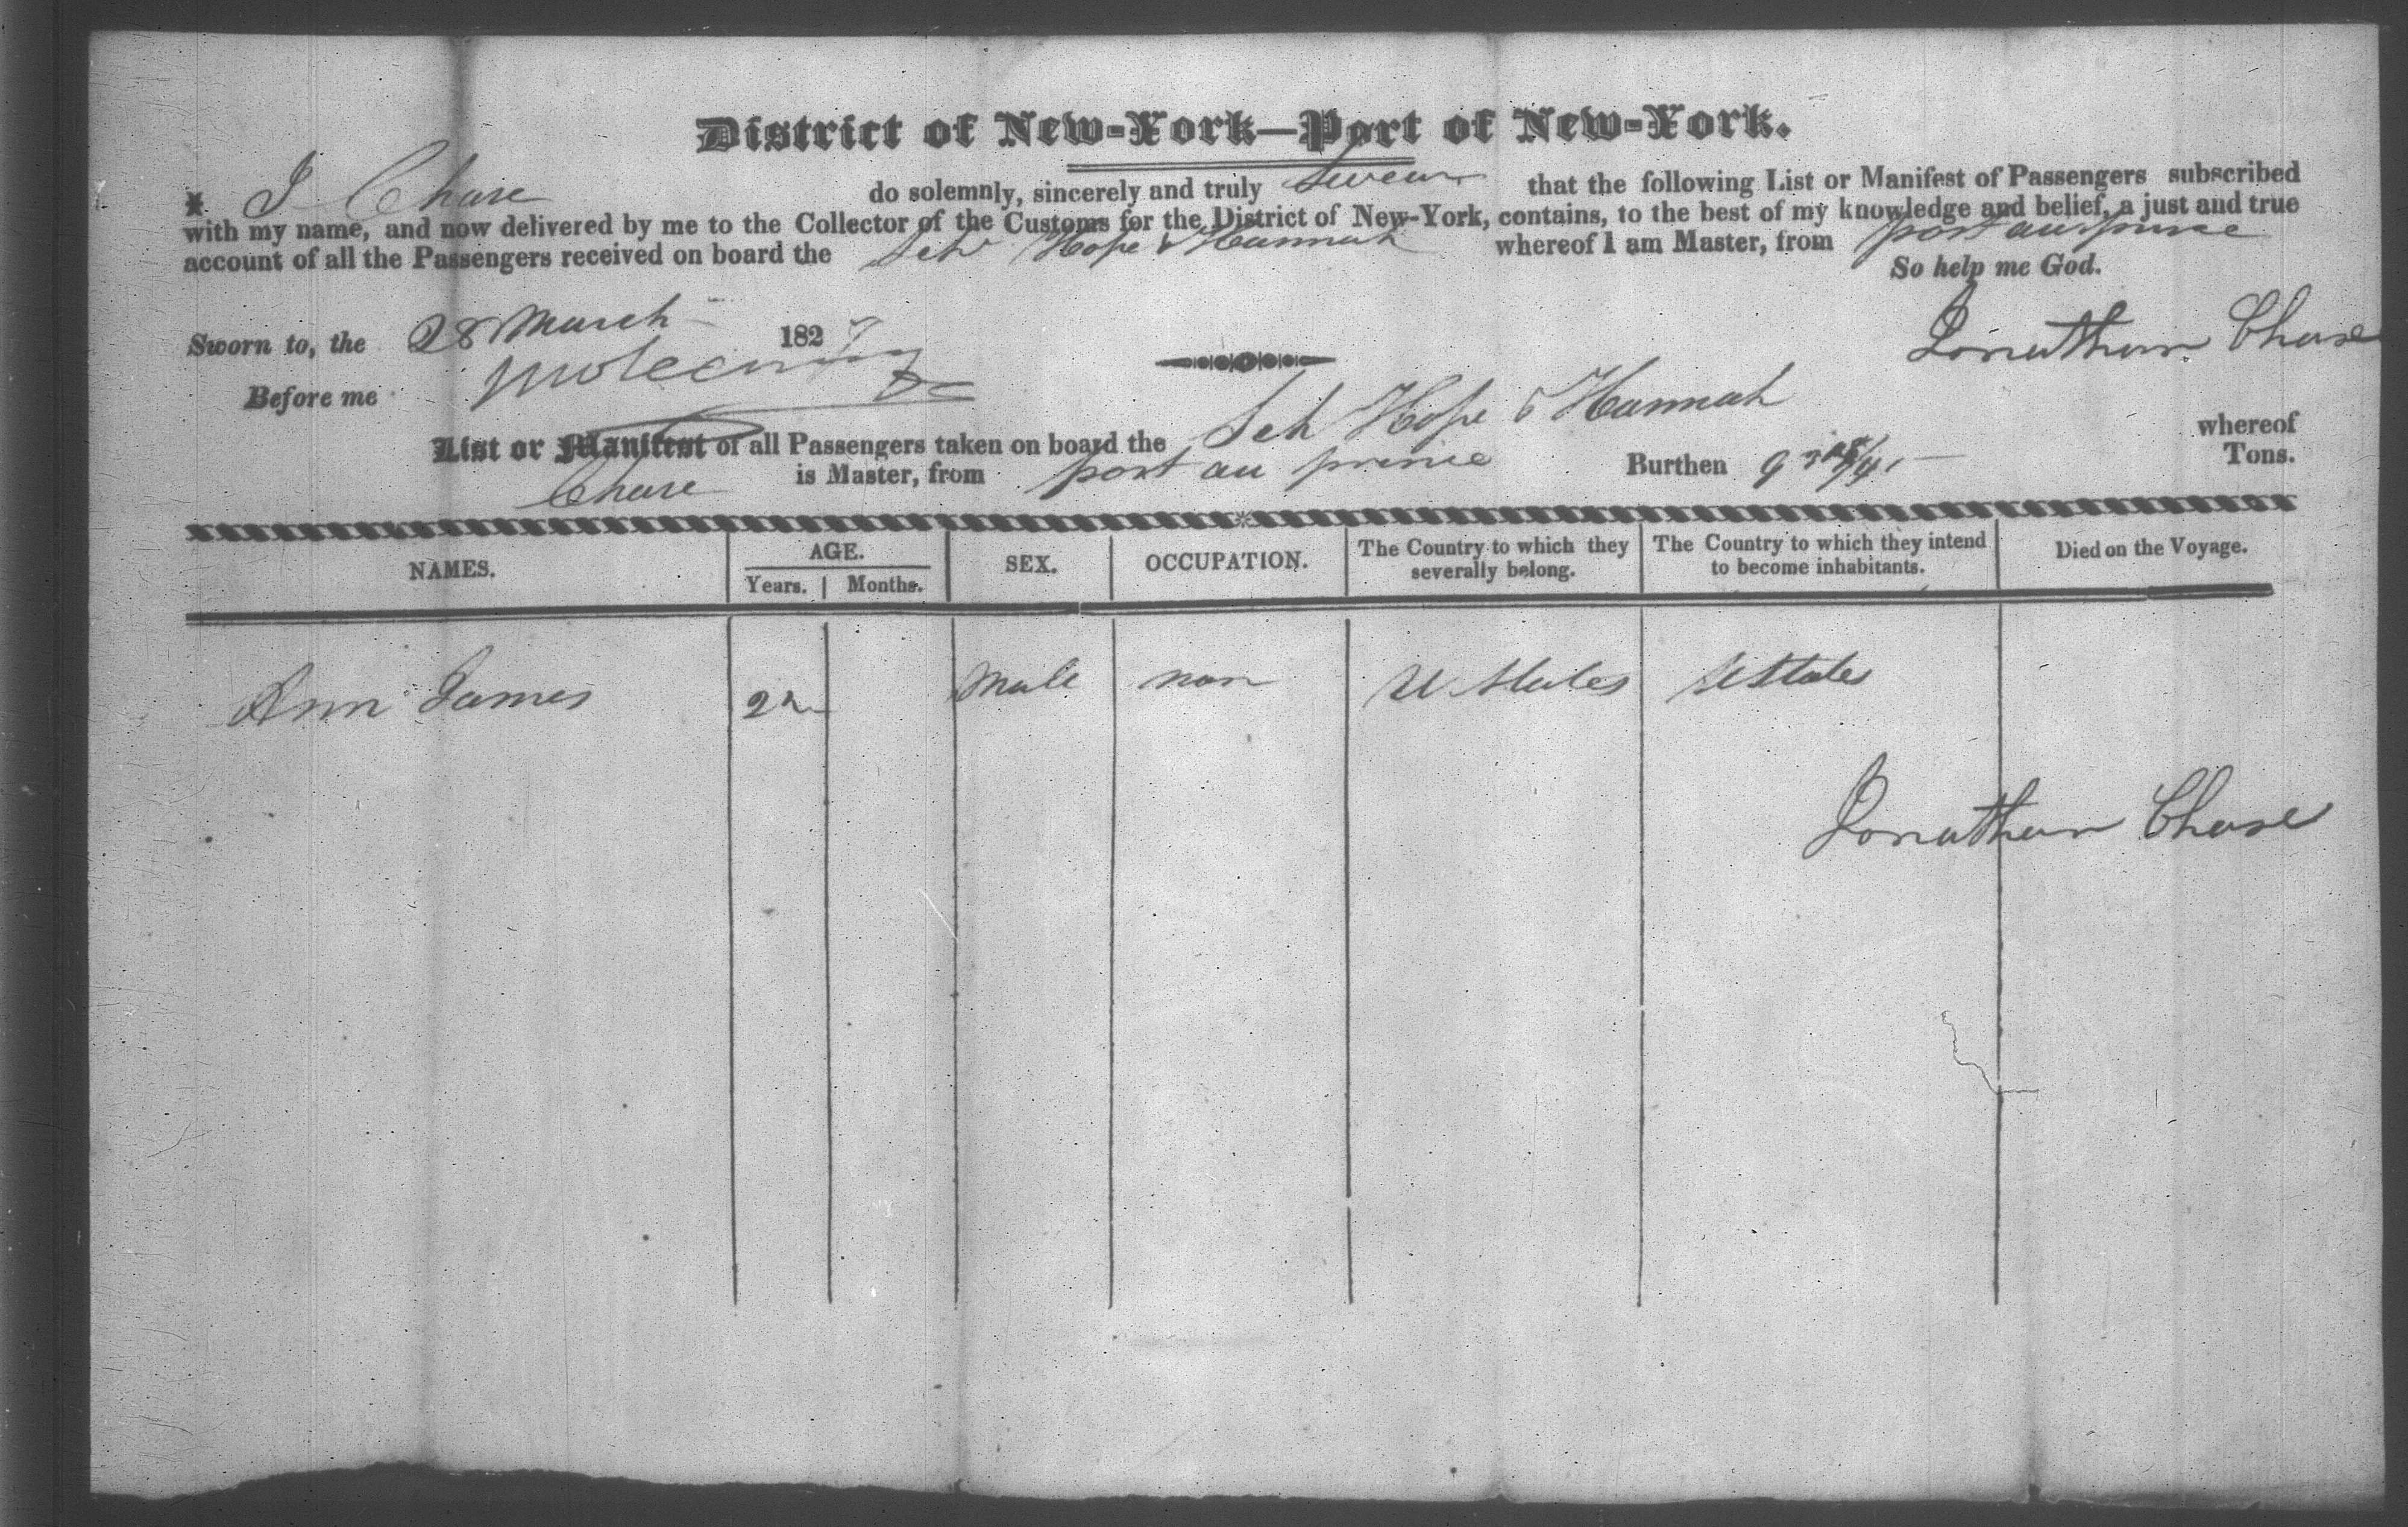 District of New-York—Port of New-York.
I Chase do solemnly, sincerely and truly Swear that the following List or Manifest of Passengers subscribed
with my name, and now delivered by me to the Collector of the Customs for the District of New-York, contains, to the best of my knowledge and belief, a just and true
account of all the Passengers received on board the Sch Hope & Hannah whereof I am Master, from port au prince
So help me God.
Sworn to, the 28 March 1827
Jonathan Chase
Before me
List or Manifest of all Passengers taken on board the Sch Hope & Hannah whereof
Chase is Master, from port au prince Burthen Tons.
NAMES. AGE. Years. Months. SEX. OCCUPATION. The Country to which they severally belong. The Country to which they intend to become inhabitants. Died on the Voyage.
Ann James 22 Male non U States U States
Jonathan Chase